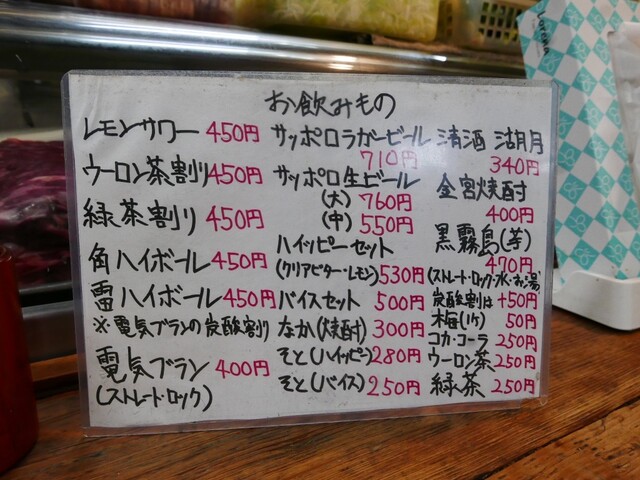 お飲みもの
レモンサワー 450円
ウーロン茶割り 450円
緑茶割り 450円
角ハイボール 450円
雷ハイボール 450円
※電気ブランの炭酸割り
電気ブラン 400円
(ストレート・ロック)
サッポロラガービール
710円
サッポロ生ビール
(大) 760円
(中) 550円
ハイッピーセット
(クリアビター・レモン) 530円
バイスセット 500円
なか(焼酎) 300円
そと(ハイッピー) 280円
そと(バイス) 250円
清酒 湖月
340円
金宮焼酎
400円
黒霧島(芋)
470円
(ストレート・ロック・水・お湯)
炭酸割は +50円
梅(1ケ) 50円
コカ・コーラ 250円
ウーロン茶 250円
緑茶 250円